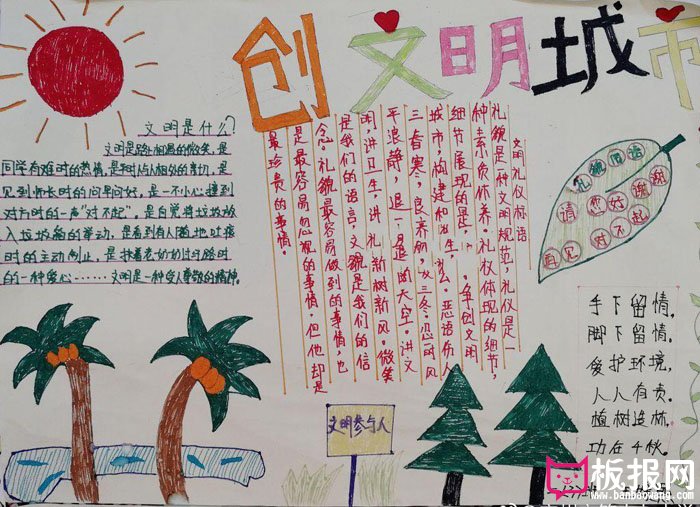 创文明城市
文明是什么?
文明是路上相遇的微笑,是
同学有难时的热情,是与人相处的亲切,是
见到师长时的问早问好,是一不小心撞到
对方时的一声“对不起”,是自觉将垃圾放
入垃圾箱的举动,是看到有人随地吐痰
时的主动制止,是扶着老奶奶过马路时
的一种爱心……文明是一种受人尊敬的精神。
文明礼仪标语
礼貌是一种文明规范,礼仪是一
种素质体养。礼仪体现的细节,
细节展现的是
争创文明
城市,构建和
恶语伤人
平浪静,退一
的天空。讲文
明,讲卫生,讲礼
新树新风。微笑
是我们的语言,文貌是我们的信
念。礼貌最容易做到的事情,也
是最容易忽视的事情,但他却是
最珍贵的事情。
礼貌用语
请 您好 谢谢
再见 对不起
手下留情,
脚下留情。
爱护环境,
人人有责。
植树造林,
功在千秋。
文明参与人
板报网
www.banbaowang.com